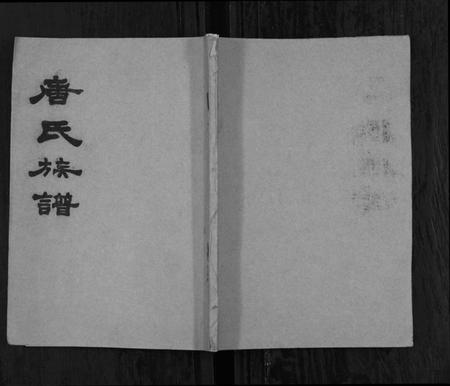 唐氏族譜